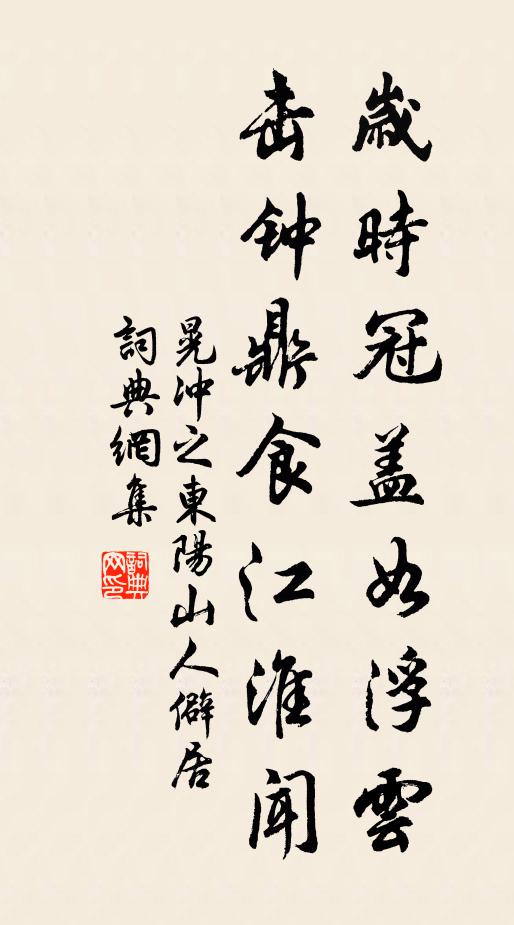 歲時冠蓋如浮雲
击钟鼎食江淮闻
晁沖之東陽山人僻居
詞典網集
詞典网印